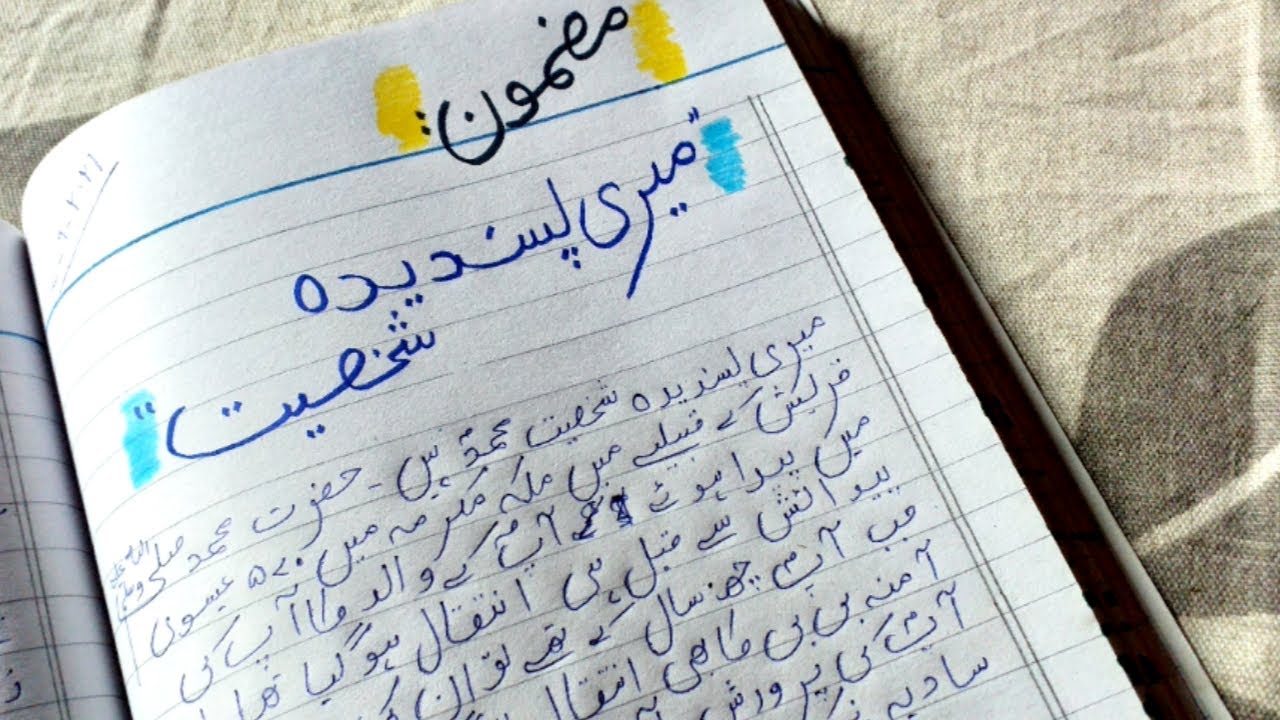 مضمون:
"میری پسندیدہ
شخصیت"
میری پسندیدہ شخصیت محمدؐ ہیں۔ حضرت محمد صلی اللہ علیہ وسلم
قریش کے قبیلے میں مکہ مکرمہ میں ۵۷۰ عیسوی
میں پیدا ہوئے آپؐ کے والد کا آپ کی
پیدائش سے قبل ہی انتقال ہو گیا تھا
جب آپؐ چھ سال کے تھے تو ان کی
آمنہ بی بی کا بھی انتقال
آپؐ کی پرورش
سادیہ